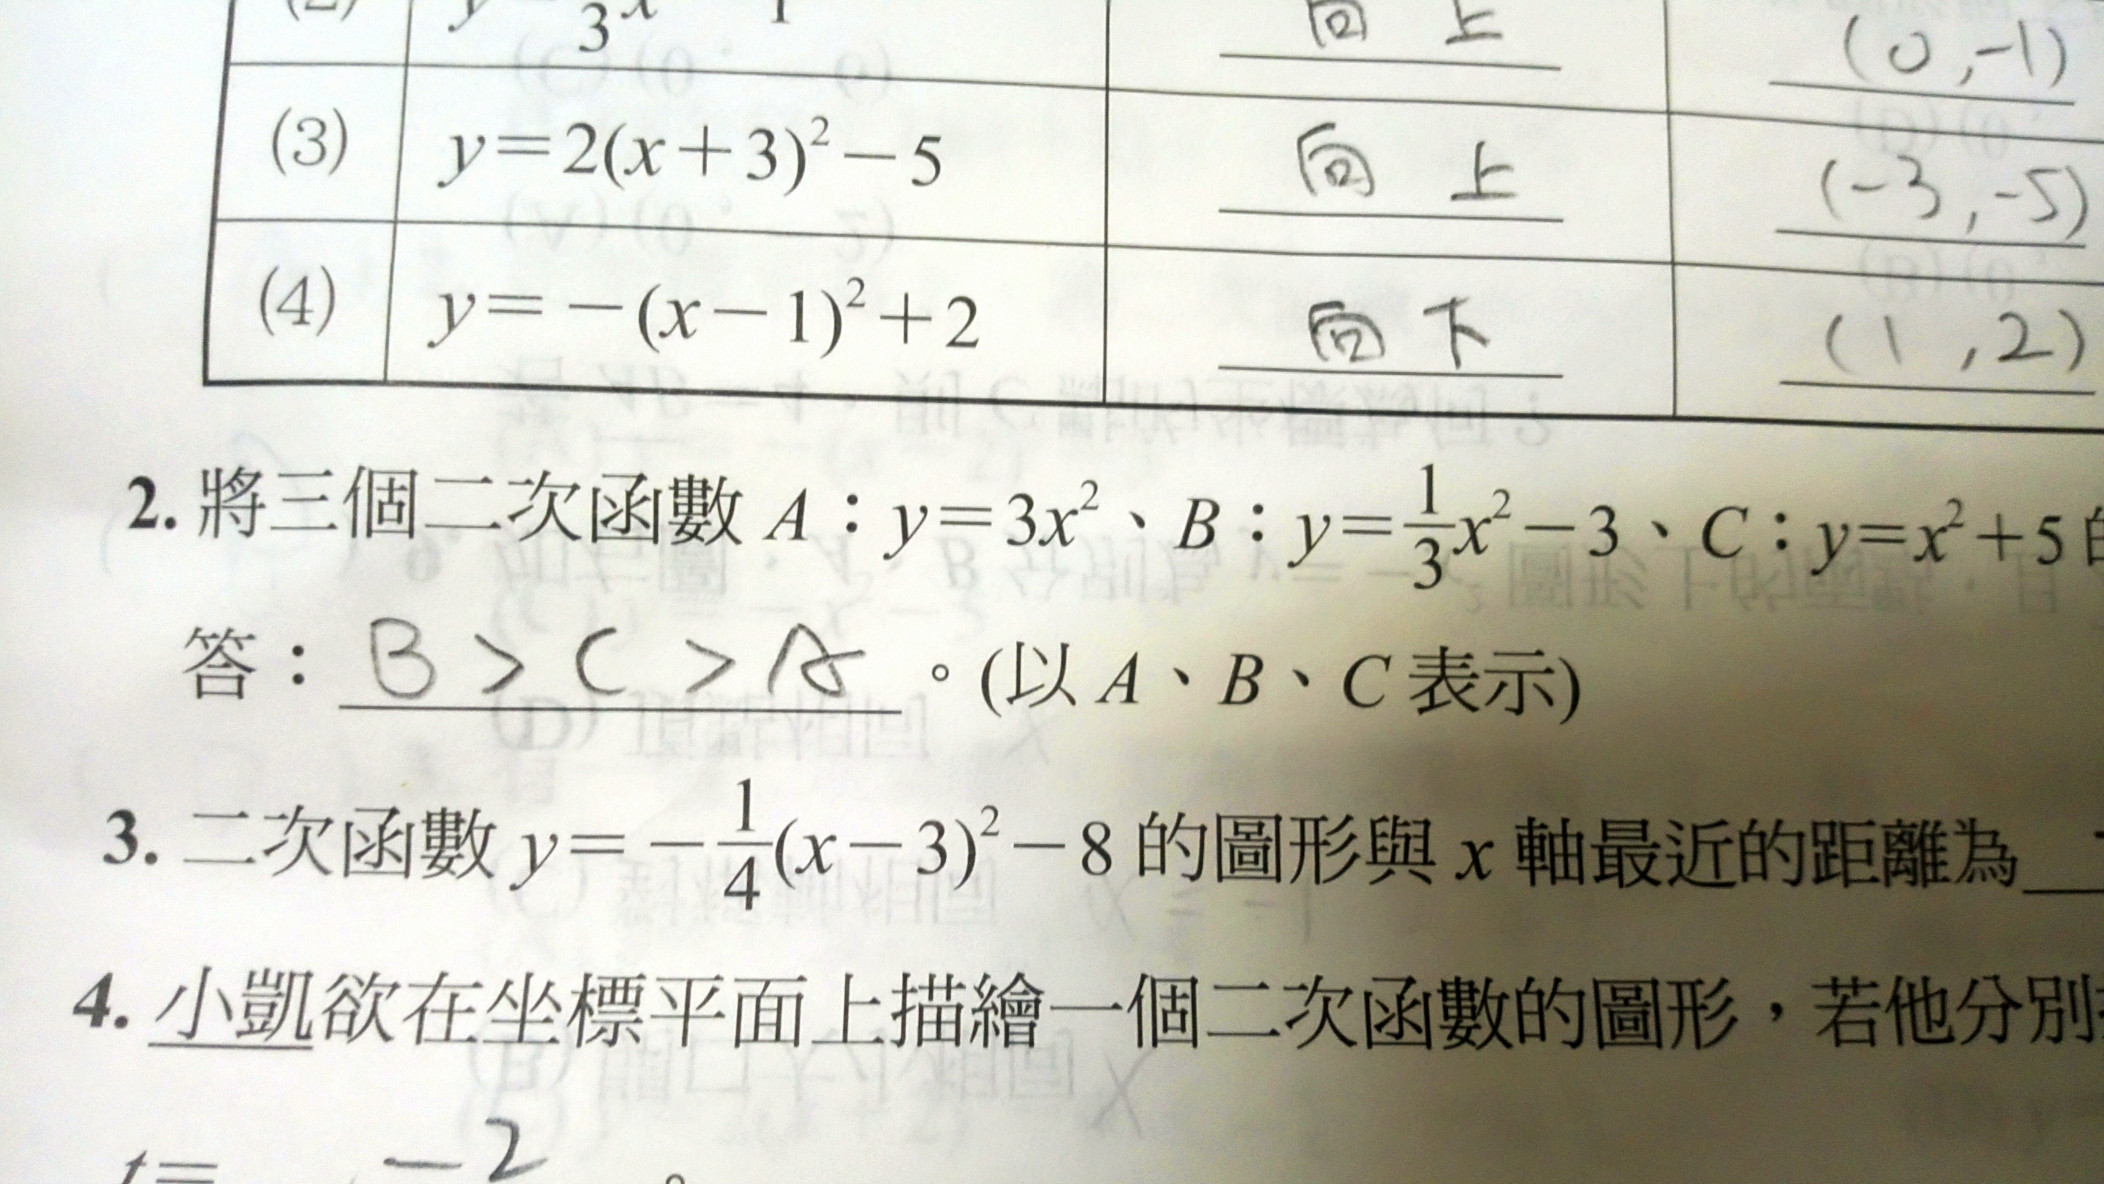 3 向上 (0,-1)
(3) y=2(x+3)²-5 向上 (-3,-5)
(4) y=-(x-1)²+2 向下 (1,2)
2. 將三個二次函數 A：y=3x²、B：y=1/3x²-3、C：y=x²+5的
答：B>C>A。(以 A、B、C 表示)
3. 二次函數 y=-1/4(x-3)²-8 的圖形與 x 軸最近的距離為
4. 小凱欲在坐標平面上描繪一個二次函數的圖形，若他分別
t= -2 。